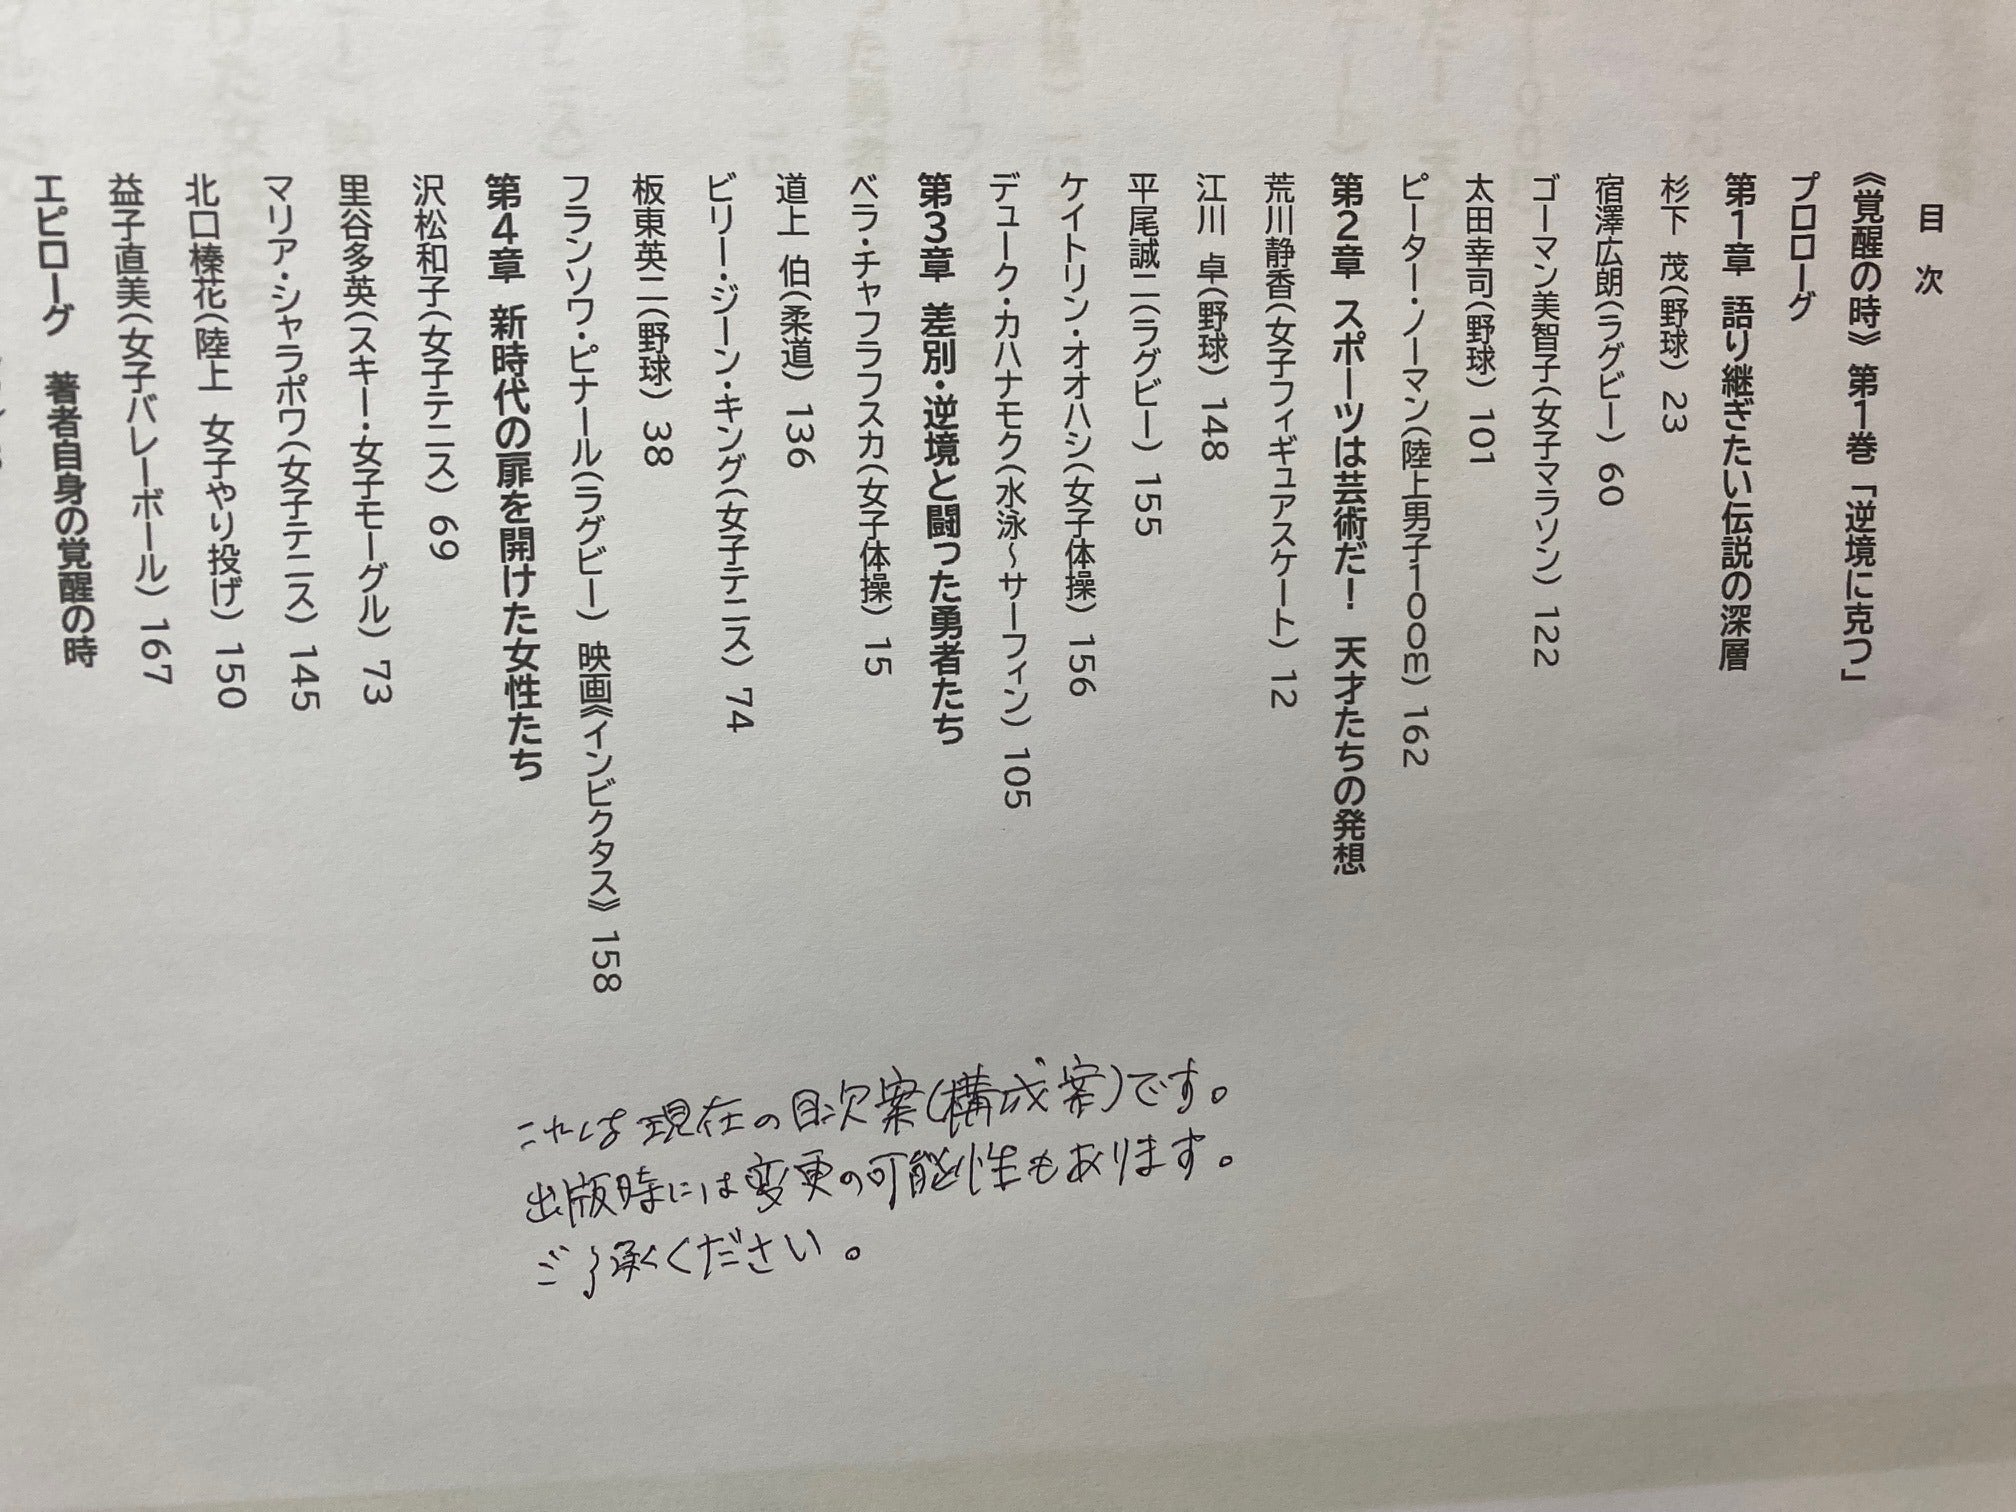 目 次
《覚醒の時》 第1巻 「逆境に克つ」
プロローグ
第1章 語り継ぎたい伝説の深層
杉下 茂(野球) 23
宿澤広朗(ラグビー) 60
ゴーマン美智子(女子マラソン) 122
太田幸司(野球) 101
ピーター・ノーマン(陸上男子100m) 162
第2章 スポーツは芸術だ! 天才たちの発想
荒川静香(女子フィギュアスケート) 12
江川 卓(野球) 148
平尾誠二(ラグビー) 155
ケイトリン・オオハシ(女子体操) 156
デューク・カハナモク(水泳~サーフィン) 105
第3章 差別・逆境と闘った勇者たち
ベラ・チャフラフスカ(女子体操) 15
道上 伯(柔道) 136
ビリー・ジーン・キング(女子テニス) 74
板東英二(野球) 38
フランソワ・ピナール(ラグビー) 映画《インビクタス》 158
第4章 新時代の扉を開けた女性たち
沢松和子(女子テニス) 69
里谷多英(スキー・女子モーグル) 73
マリア・シャラポワ(女子テニス) 145
北口榛花(陸上 女子やり投げ) 150
益子直美(女子バレーボール) 167
エピローグ 著者自身の覚醒の時
これは現在の目次案(構成案)です。
出版時には変更の可能性もあります。
ご了承ください。